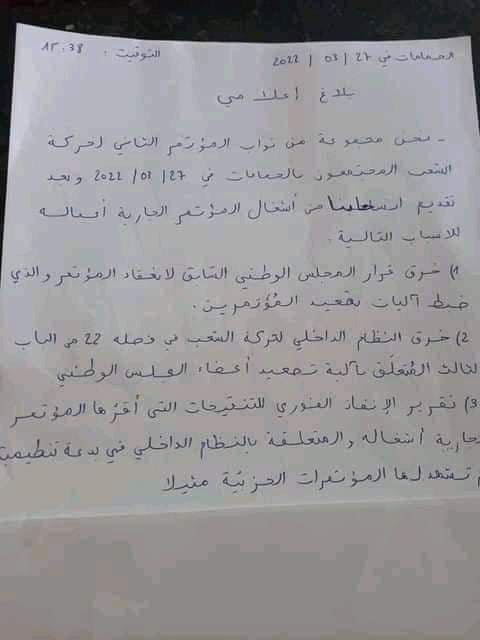 الحمامات في 27 / 03 / 2022 التوقيت : 15:38
بلاغ إعلامي
- نحن مجموعة من نواب المؤتمر الثاني لحركة
الشعب المجتمعون بالحمامات في 27 / 03 / 2022 وبعد
تقديم انسحابنا من أشغال المؤتمر الجارية أعماله
للأسباب التالية :
1) خرق قرار المجلس الوطني السابق لانعقاد المؤتمر والذي
ضبط آليات تصعيد المؤتمرين.
2) خرق النظام الداخلي لحركة الشعب في فصله 22 من الباب
الثالث المتعلق بآلية تصعيد أعضاء المجلس الوطني
3) تقرير الإنفاذ الفوري للتنقيحات التي أقرها المؤتمر
الجارية أشغاله والمتعلقة بالنظام الداخلي في بدعة تنظيمية
لم تشهد لها المؤتمرات الحزبية مثيلا